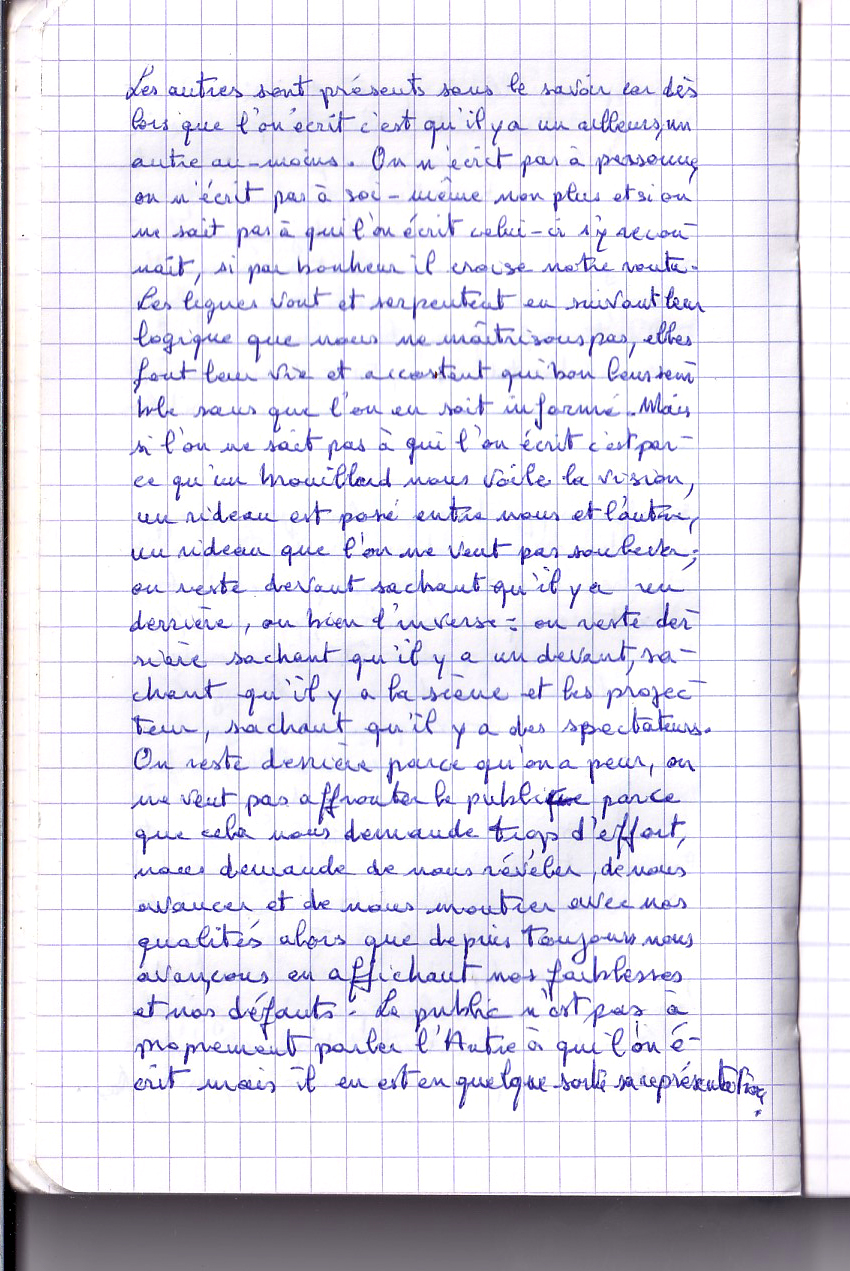 Les autres sont présents sans le savoir car dès
lors que l'on écrit c'est qu'il y a un ailleurs, un
autre au-moins. On n'écrit pas à personne,
on n'écrit pas à soi-même non plus et si on
ne sait pas à qui l'on écrit celui-ci s'y recon
naît, si par bonheur il croise notre route.
Les lignes vont et serpentent en suivant leur
logique que nous ne maîtrisons pas, elles
font leur vie et accostent qui bon leur sem
ble sans que l'on en soit informé. Mais
si l'on ne sait pas à qui l'on écrit c'est par-
ce qu'un brouillard nous voile la vision,
un rideau est posé entre nous et l'autre,
un rideau que l'on ne veut pas soulever;
on reste devant sachant qu'il y a un
derrière, ou bien l'inverse : on reste der
rière sachant qu'il y a un devant, sa-
chant qu'il y a la scène et les projec
teur, sachant qu'il y a des spectateurs.
On reste derrière parce qu'on a peur, on
ne veut pas affronter le public parce
que cela nous demande trop d'effort,
nous demande de nous révéler, de nous
avancer et de nous montrer avec nos
qualités alors que depuis toujours nous
avançons en affichant nos faiblesses
et nos défauts. Le public n'est pas à
proprement parler l'Autre à qui l'on é-
crit mais il en est en quelque sorte sa représentation.